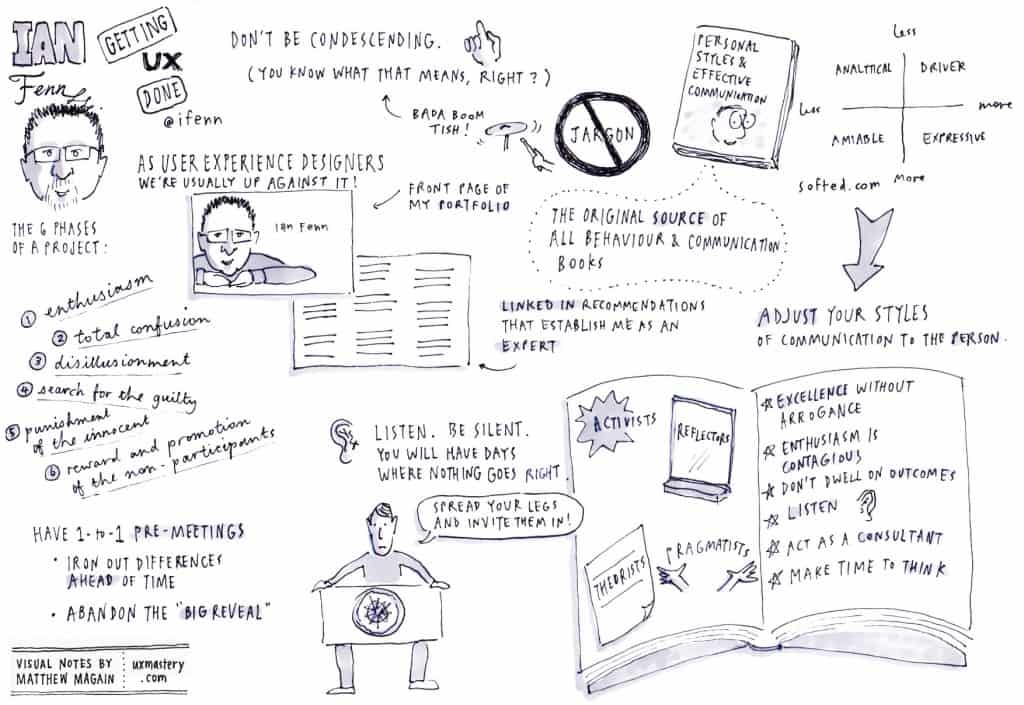 IAN
Fenn
GETTING
UX
DONE
@ifenn
DON'T BE CONDESCENDING.
(YOU KNOW WHAT THAT MEANS, RIGHT?)
BADA BOOM
TISH!
JARGON
PERSONAL
STYLES &
EFFECTIVE
COMMUNICATION
Less
ANALYTICAL
DRIVER
Less
more
AMIABLE
EXPRESSIVE
softed.com
more
AS USER EXPERIENCE DESIGNERS
WE'RE USUALLY UP AGAINST IT!
Ian Fenn
FRONT PAGE OF
MY PORTFOLIO
THE ORIGINAL SOURCE OF
ALL BEHAVIOUR & COMMUNICATION:
BOOKS
LINKED IN RECOMMENDATIONS
THAT ESTABLISH ME AS AN
EXPERT
ADJUST YOUR STYLES
OF COMMUNICATION TO THE PERSON.
THE 6 PHASES
OF A PROJECT:
1 enthusiasm
2 total confusion
3 disillusionment
4 search for the guilty
5 punishment
of the innocent
6 reward and promotion
of the non-participants
HAVE 1-to-1 PRE-MEETINGS
• IRON OUT DIFFERENCES
AHEAD OF TIME
• ABANDON THE "BIG REVEAL"
LISTEN. BE SILENT.
YOU WILL HAVE DAYS
WHERE NOTHING GOES RIGHT.
SPREAD YOUR LEGS
AND INVITE THEM IN!
ACTIVISTS
REFLECTORS
THEORISTS
PRAGMATISTS
EXCELLENCE WITHOUT
ARROGANCE
ENTHUSIASM IS
CONTAGIOUS
DON'T DWELL ON OUTCOMES
LISTEN
ACT AS A CONSULTANT
MAKE TIME TO THINK
VISUAL NOTES BY
MATTHEW MAGAIN
uxmastery
.com